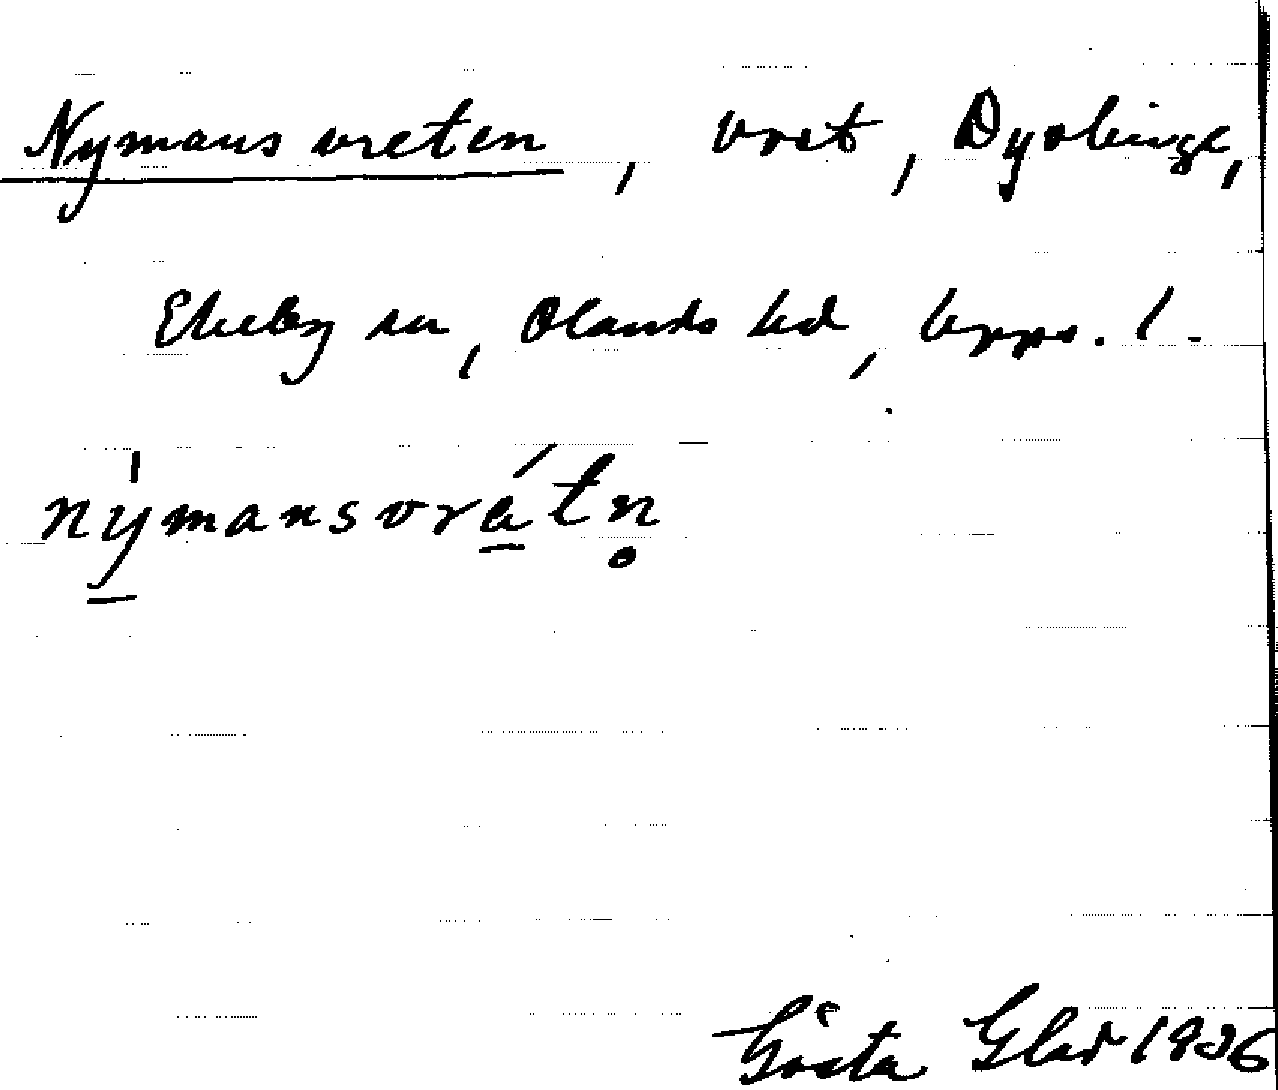 Nymansvreten, vret, Dyvlinge,
Ekeby sn, Olands hd, Upps. l.
nýmansvrätn̥
Gösta Glad 1936